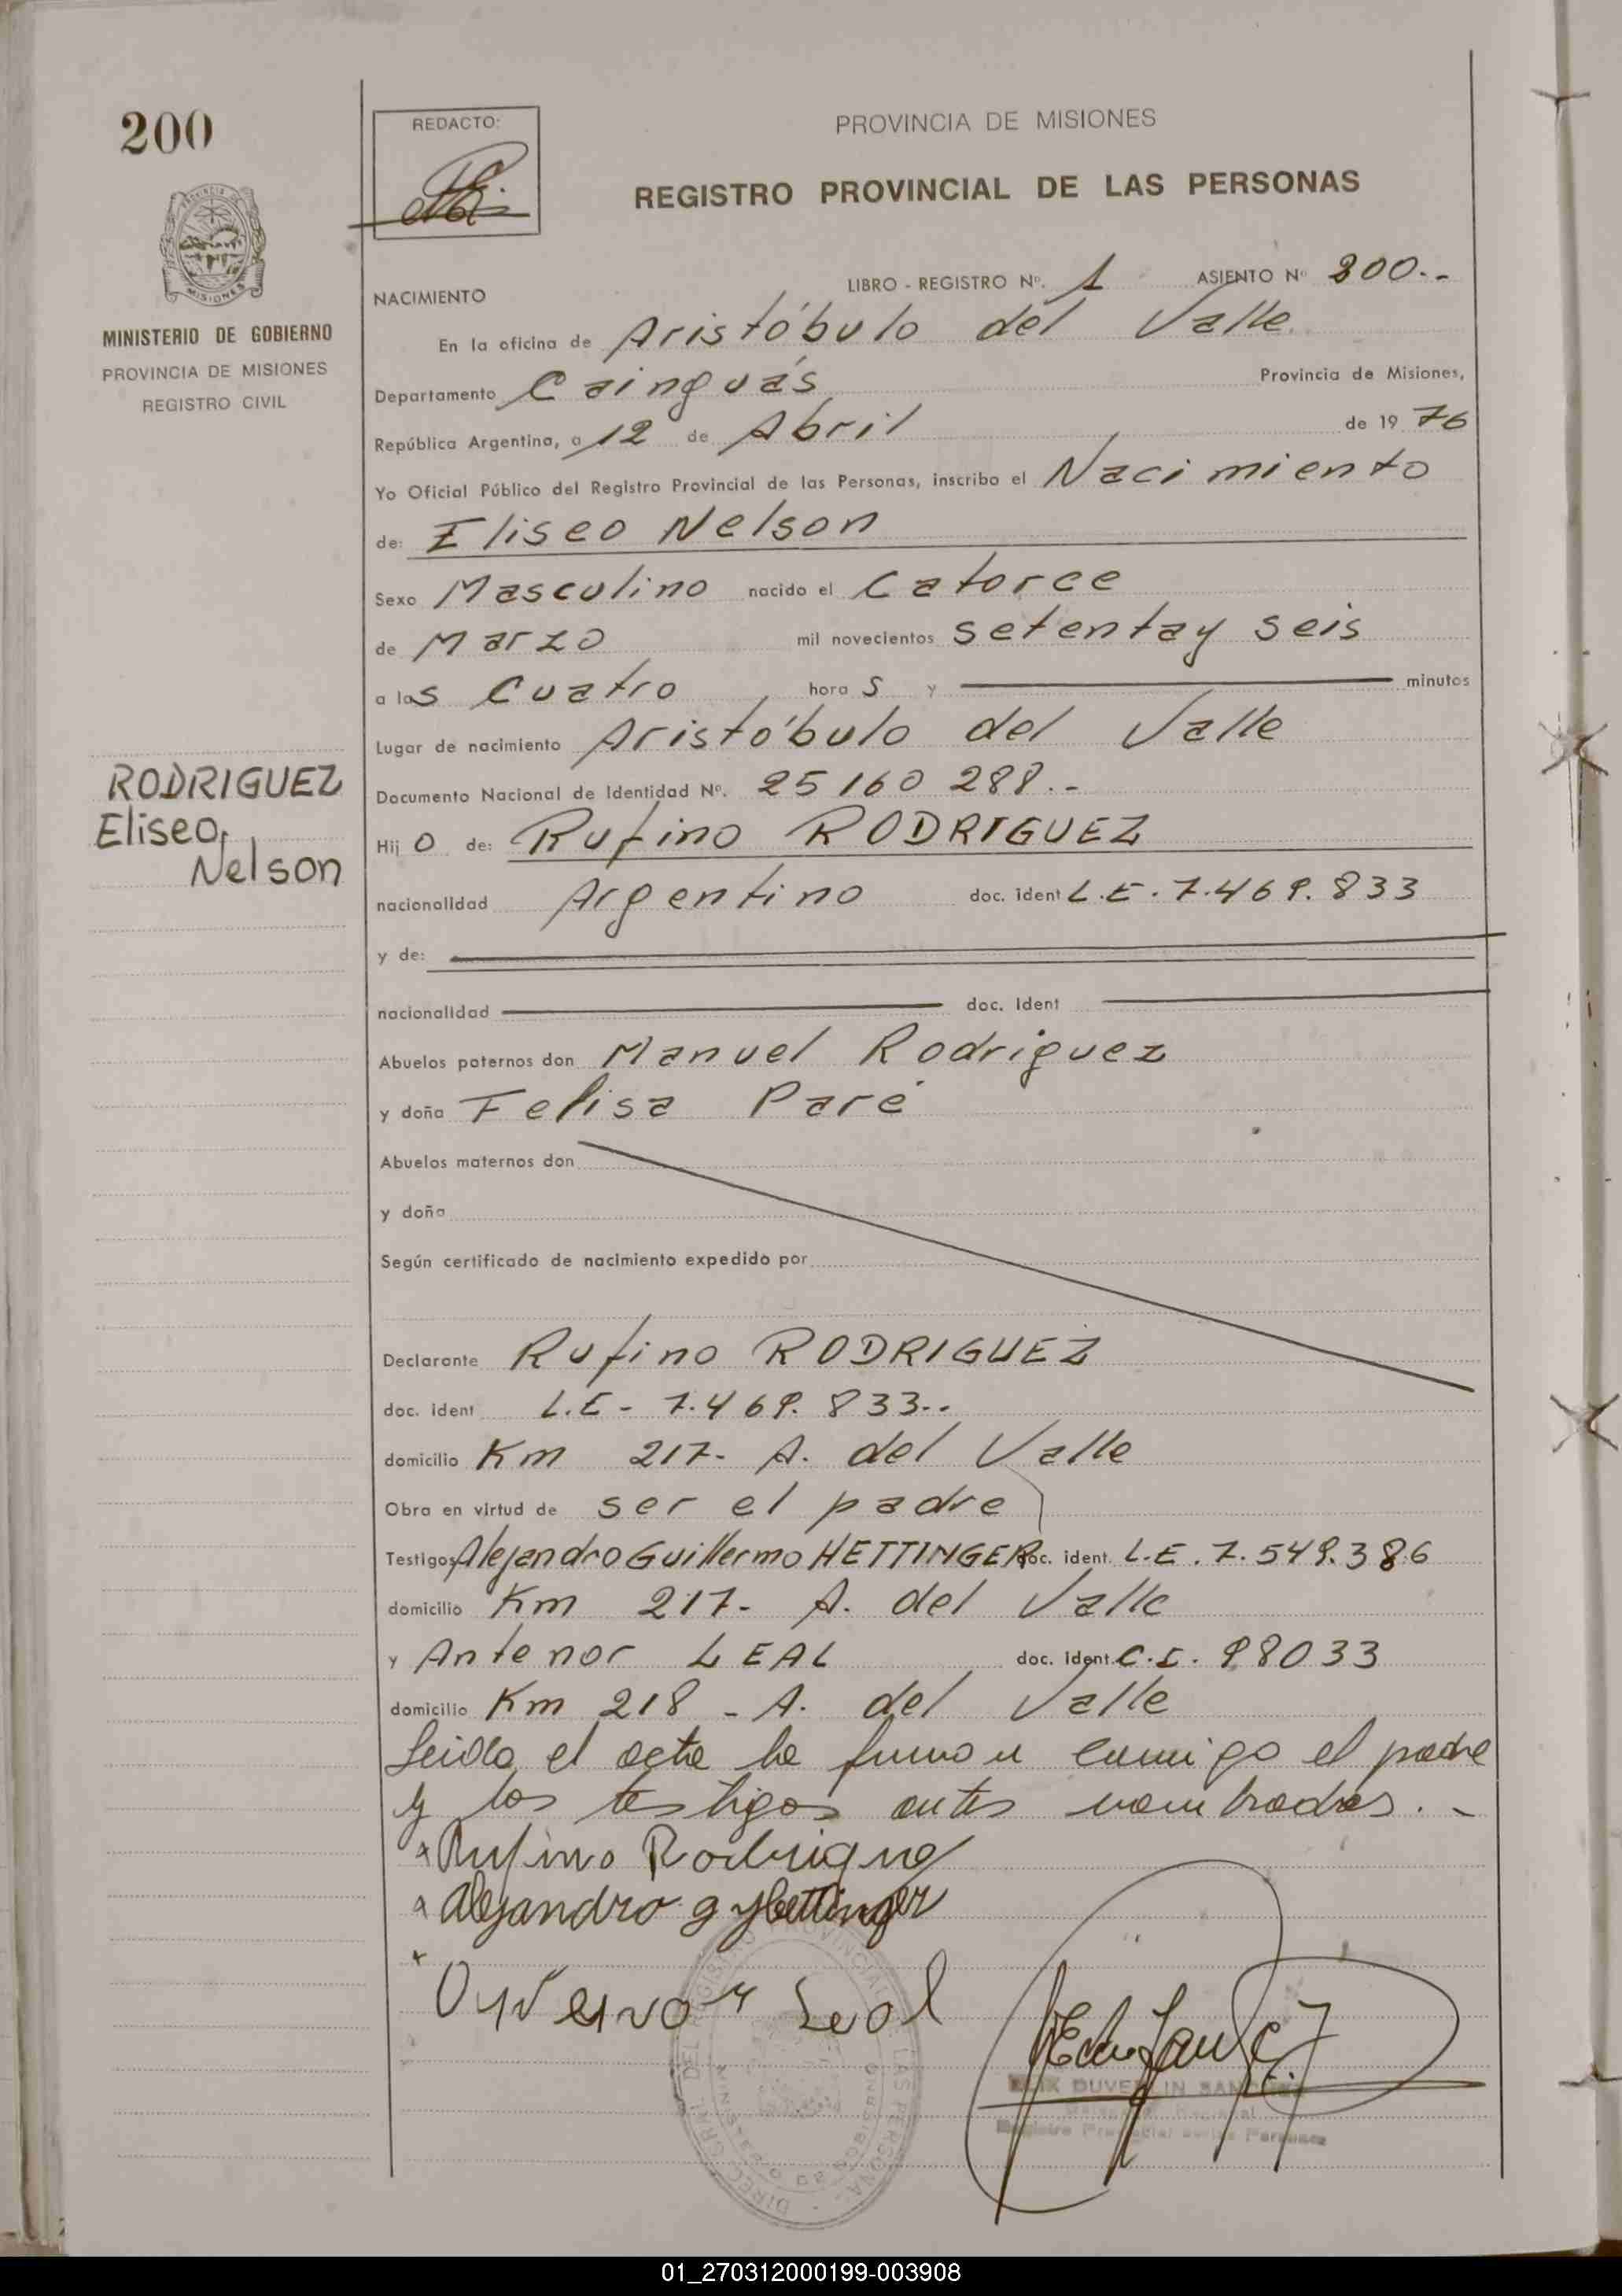 200
REDACTO:
PROVINCIA DE MISIONES
REGISTRO PROVINCIAL DE LAS PERSONAS
MISIONES
MINISTERIO DE GOBIERNO
PROVINCIA DE MISIONES
REGISTRO CIVIL
NACIMIENTO
LIBRO - REGISTRO Nº. 1 ASIENTO Nº 200.-
En la oficina de Aristóbulo del Valle
Departamento Cainguás Provincia de Misiones,
República Argentina, a 12 de Abril de 19 76
Yo Oficial Público del Registro Provincial de las Personas, inscribo el Nacimiento
de: Eliseo Nelson
Sexo Masculino nacido el Catorce
de Marzo mil novecientos setenta y seis
a las Cuatro horas y minutos
Lugar de nacimiento Aristóbulo del Valle
Documento Nacional de Identidad Nº. 25 160 288.-
RODRIGUEZ
Eliseo,
Nelson
Hijo de: Rufino RODRIGUEZ
nacionalidad Argentino doc. ident L.E. 7.469.833
y de:
nacionalidad doc. Ident
Abuelos paternos don Manuel Rodriguez
y doña Felisa Paré
Abuelos maternos don
y doña
Según certificado de nacimiento expedido por
Declarante Rufino RODRIGUEZ
doc. ident L.E - 7.469.833..
domicilio Km 217- A. del Valle
Obra en virtud de ser el padre
Testigos Alejandro Guillermo HETTINGER doc. ident. L.E. 7.549.386
domicilio Km 217- A. del Valle
y Antenor LEAL doc. Ident. C.I. 98033
domicilio Km 218 - A. del Valle
Leida el acta la firman conmigo el padre
y los testigos antes nombrados. -
Rufino Rodrigue
Alejandro g Hettinger
Antenor Leal
DUVE IN SAN
Registro Provincial de las Personas
01_270312000199-003908